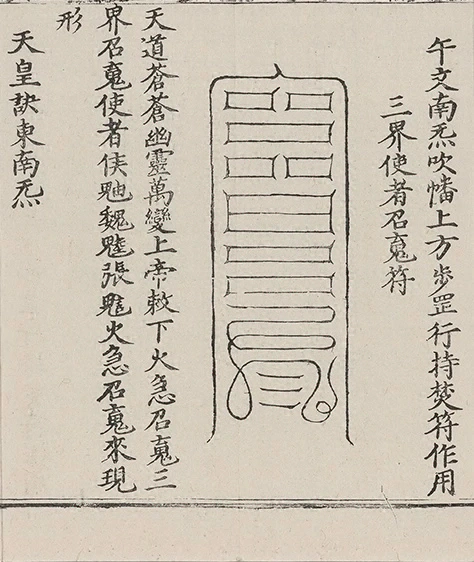 午文南炁吹幡上方步罡行持焚符作用
三界使者召䰟符
天道蒼蒼幽靈萬變上帝敕下火急召䰟三
界召䰟使者侯魈魏魋張魁火急召䰟來現
形
天皇訣東南炁